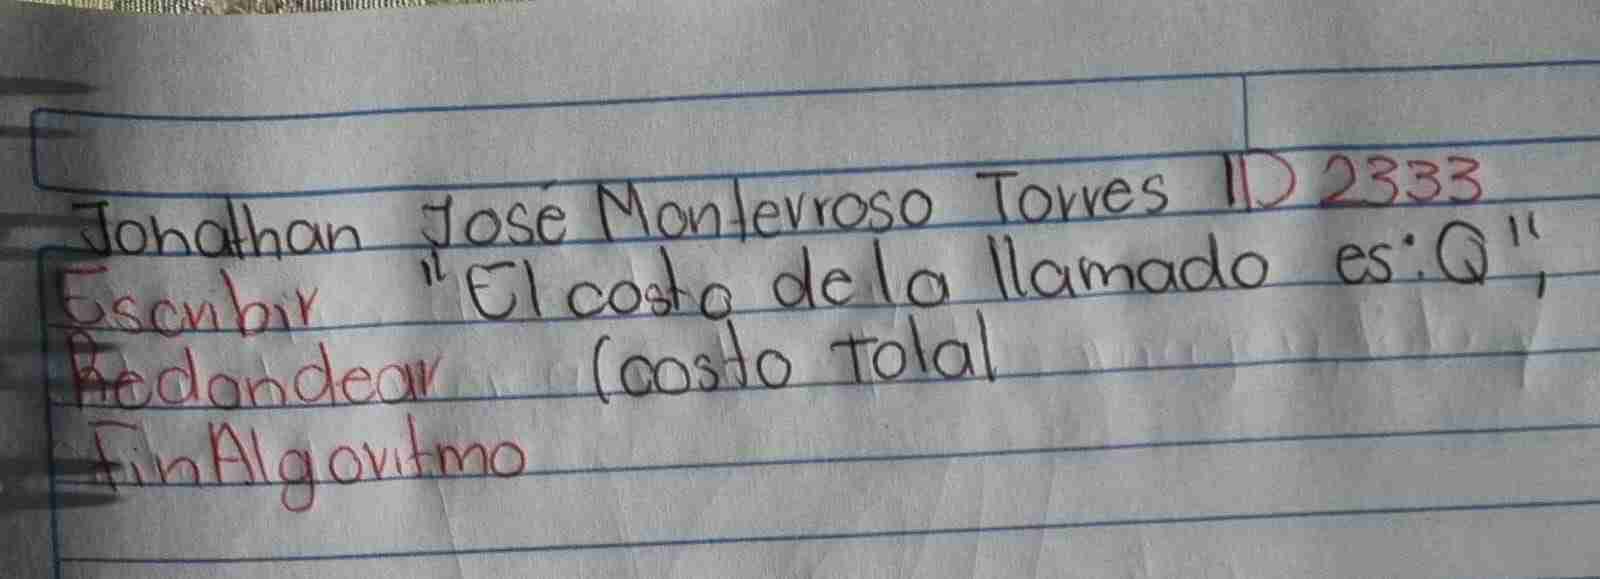 Jonathan José Monterroso Torres ID 2333
Escribir "El costo de la llamado es: Q",
Redondear (costo total
FinAlgoritmo